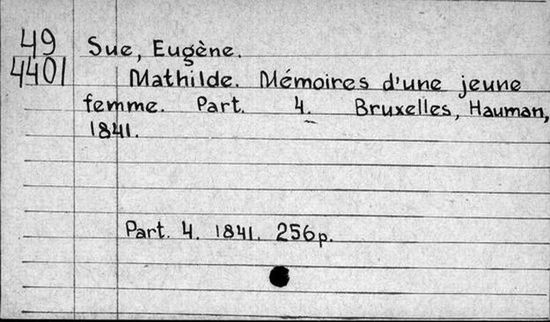 49
4401
Sue, Eugène.
Mathilde. Mémoires d'une jeune
femme. Part. 4. Bruxelles, Hauman,
1841.
Part. 4. 1841. 256p.